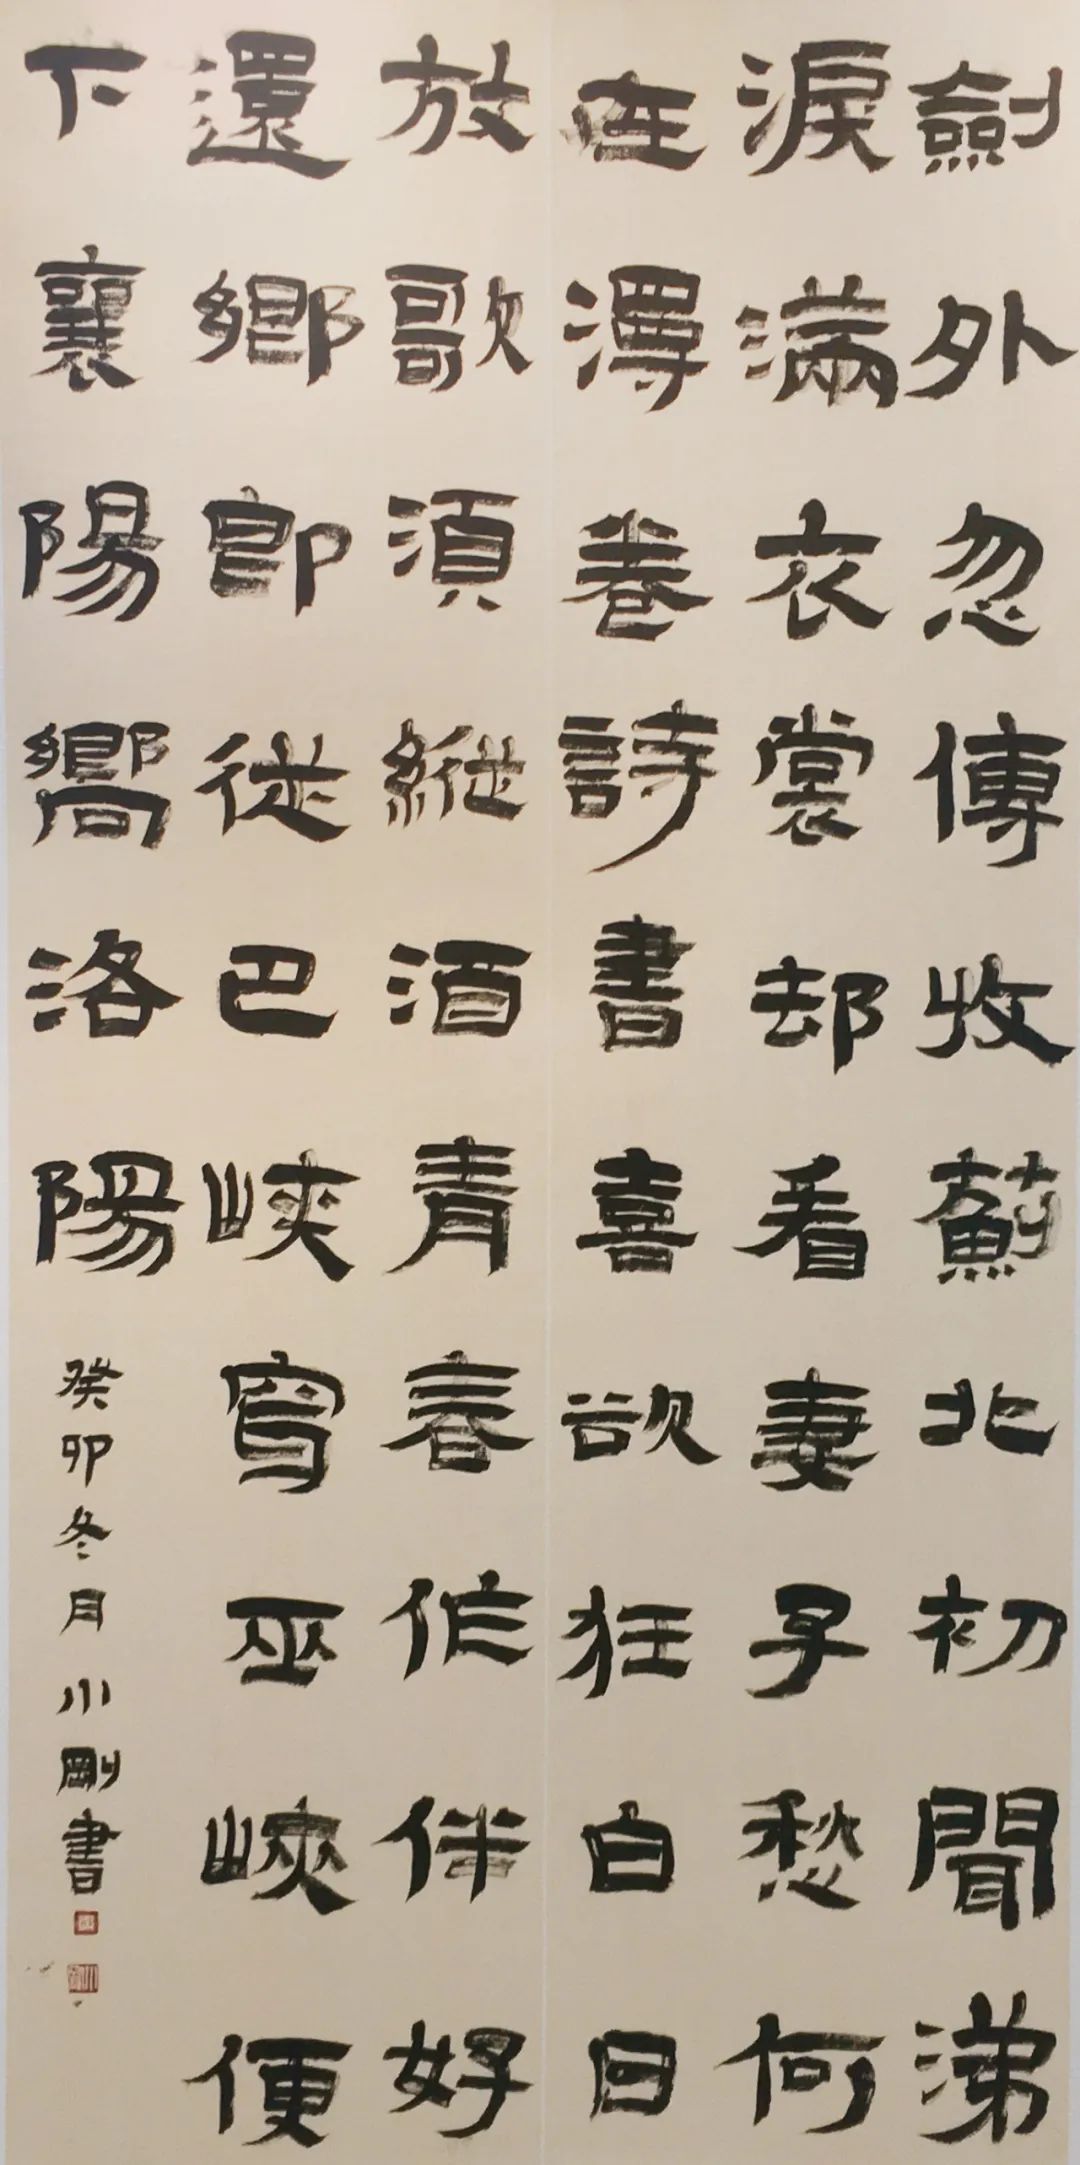 劍外忽傳收薊北初聞涕
淚滿衣裳却看妻子愁何
在漫卷詩書喜欲狂白日
放歌須縱酒青春作伴好
還鄉即從巴峽穿巫峽便
下襄陽嚮洛陽
癸卯冬月小剛書